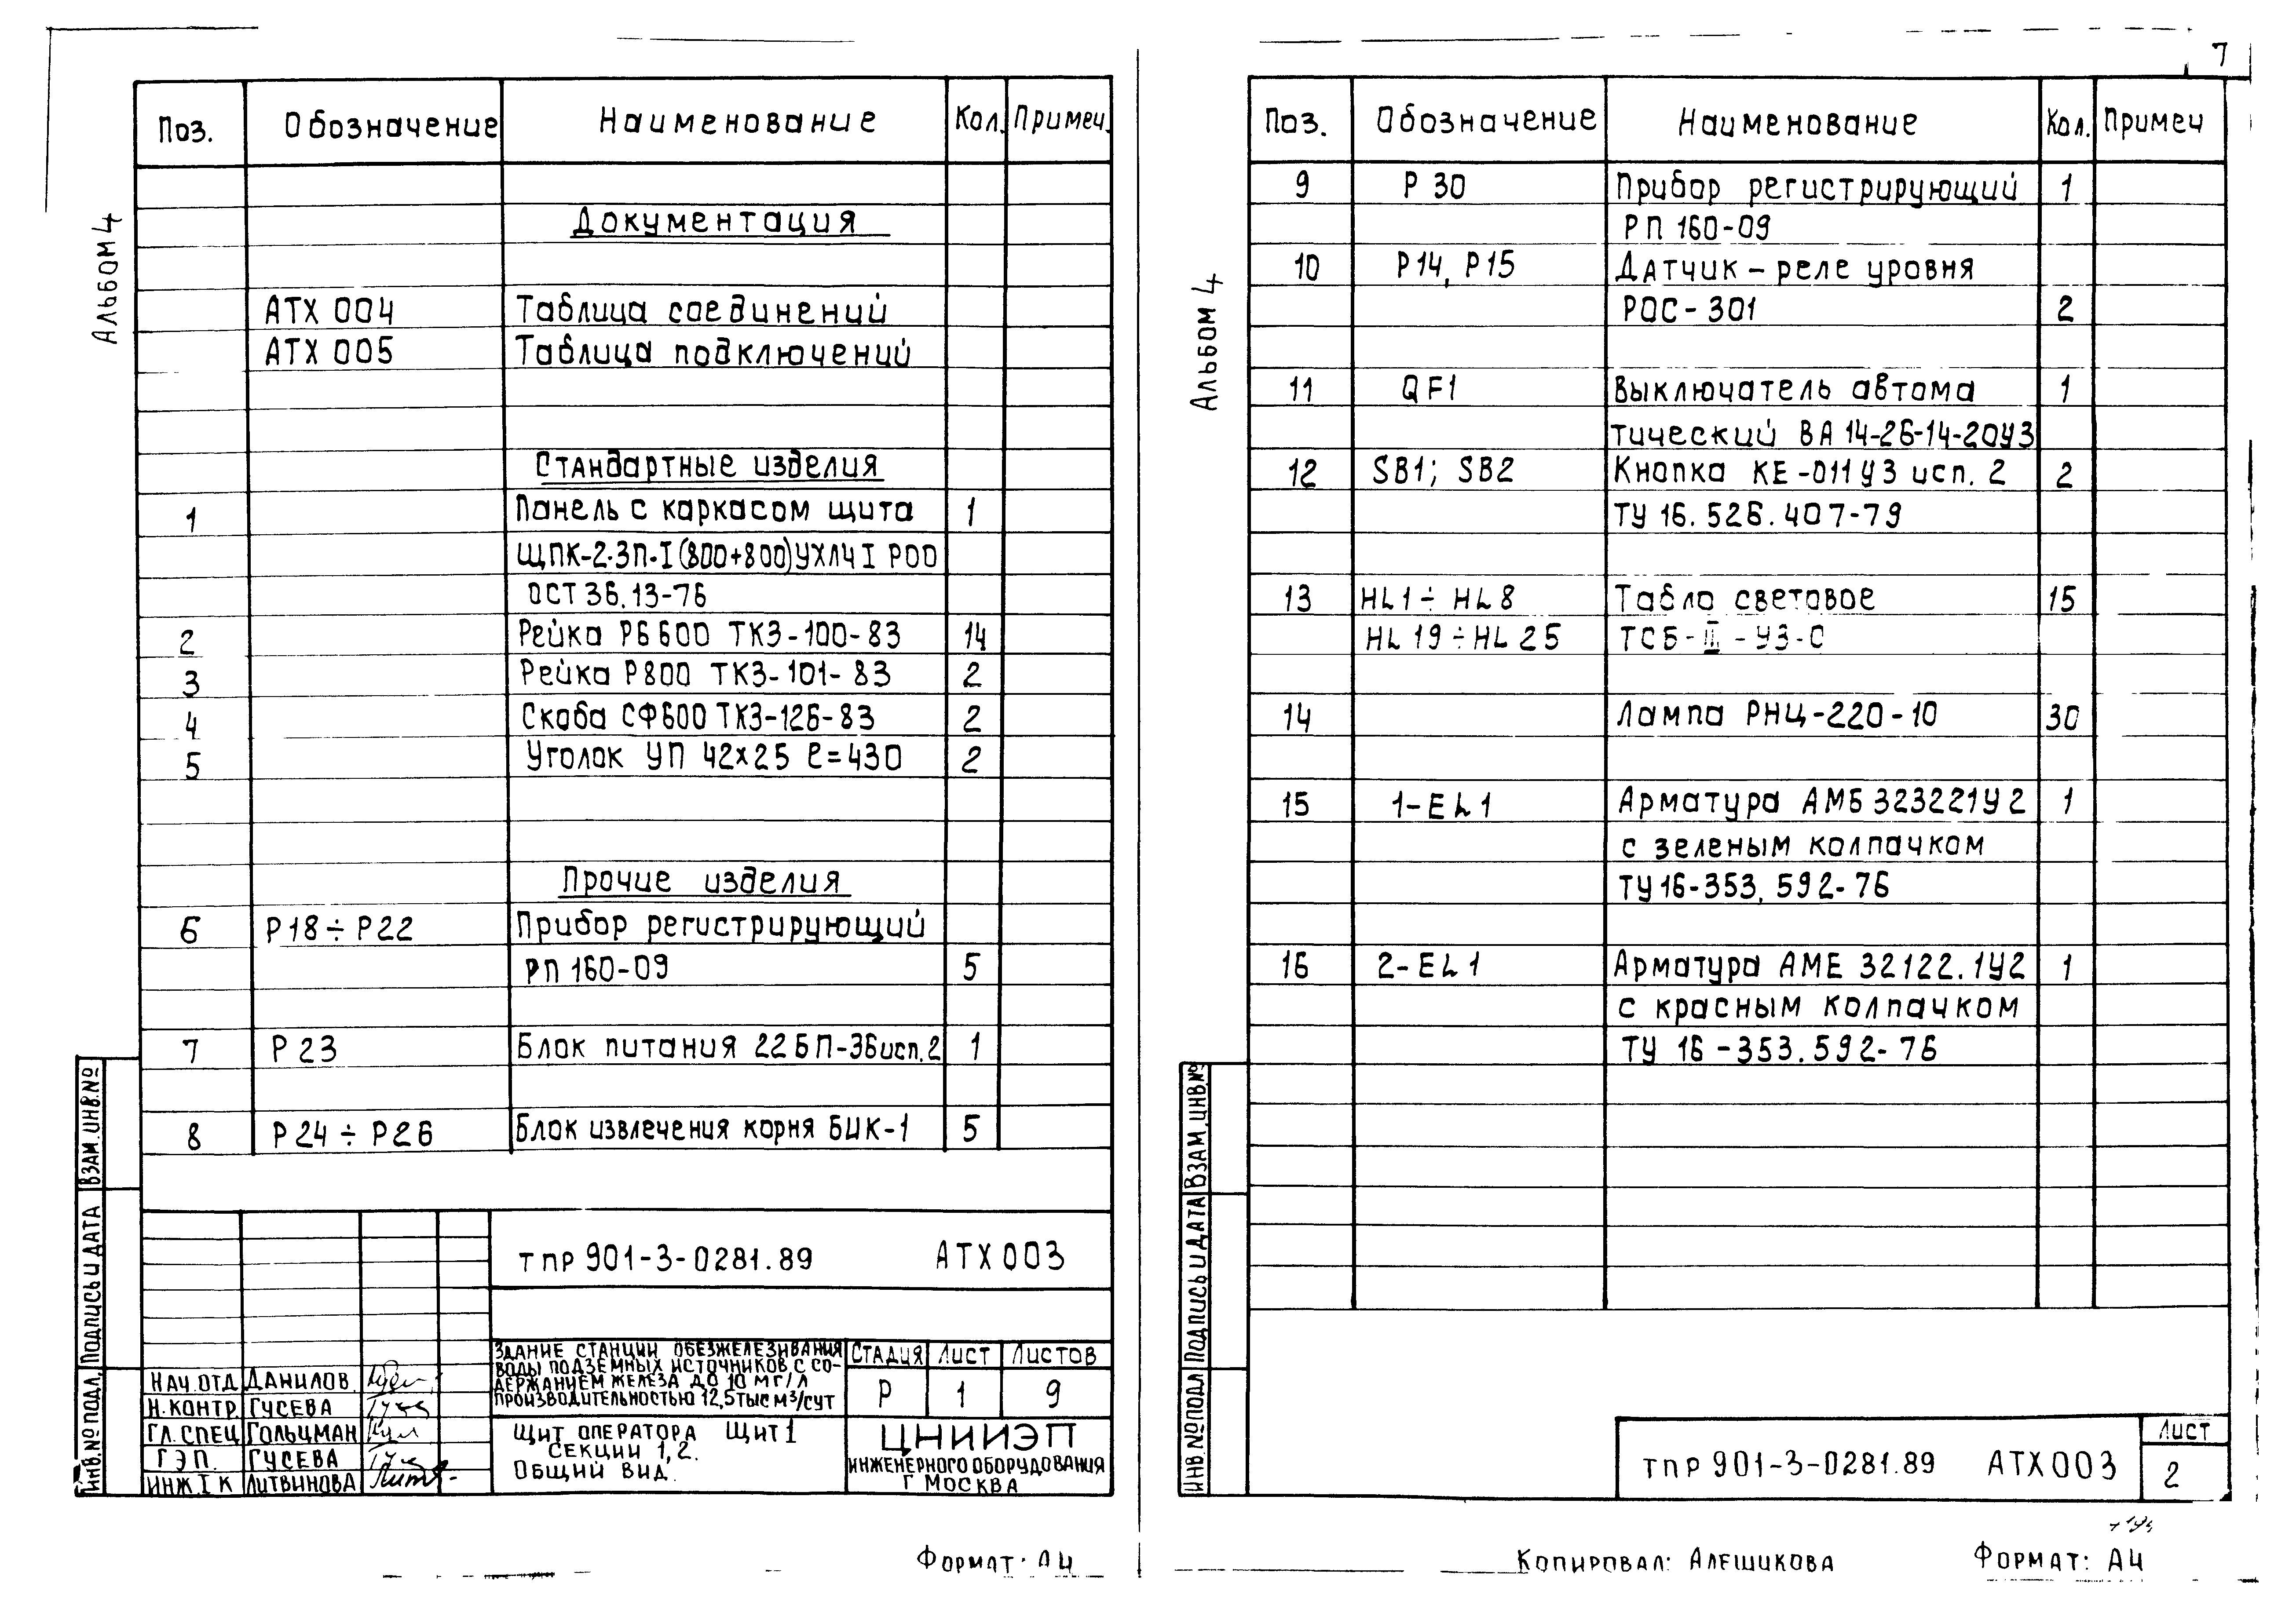 7
Альбом 4
Поз. Обозначение Наименование Кол. Примеч.
Документация
АТХ 004 Таблица соединений
АТХ 005 Таблица подключений
Стандартные изделия
1 Панель с каркасом щита 1
ЩПК-2-ЗП-I(800+800)УХЛЧ I Р00
ОСТ 36.13-76
2 Рейка РБ600 ТКЗ-100-83 14
3 Рейка Р800 ТКЗ-101-83 2
4 Скоба СФ600 ТКЗ-126-83 2
5 Уголок УП 42х25 ℓ=430 2
Прочие изделия
6 Р18÷Р22 Прибор регистрирующий
РП 160-09 5
7 Р23 Блок питания 22БП-36 исп.2 1
8 Р24÷Р26 Блок извлечения корня БИК-1 5
ВЗАМ.ИНВ.№
Подпись и дата
Инв.№ подл.
ТПР 901-3-0281.89 АТХ003
Здание станции обезжелезивания
воды подземных источников с со-
держанием железа до 10 мг/л
производительностью 12,5 тыс м³/сут
Стадия Лист Листов
Р 1 9
Нач.отд Данилов
Н.контр. Гусева
Гл.спец Гольцман
ГЭП. Гусева
Инж.I К Литвинова
Щит оператора Щит 1
Секции 1,2.
Общий вид.
ЦНИИЭП
инженерного оборудования
г Москва
Формат: А4
Альбом 4
Поз. Обозначение Наименование Кол. Примеч
9 Р30 Прибор регистрирующий 1
РП 160-09
10 Р14, Р15 Датчик-реле уровня
РОС-301 2
11 QF1 Выключатель автома 1
тический ВА 14-26-14-20У3
12 SB1; SB2 Кнопка КЕ-011У3 исп. 2 2
ТУ 16.526.407-79
13 HL1÷HL8 Табло световое 15
HL19÷HL25 ТСБ-III-У3-С
14 Лампа РНЦ-220-10 30
15 1-EL1 Арматура АМБ 323221У2 1
с зеленым колпачком
ТУ 16-353.592-76
16 2-EL1 Арматура АМЕ 32122.1У2 1
с красным колпачком
ТУ 16-353.592-76
ВЗАМ.ИНВ.№
Подпись и дата
Инв.№ подл
ТПР 901-3-0281.89 АТХ003
Лист
2
Копировал: Алешикова Формат: А4